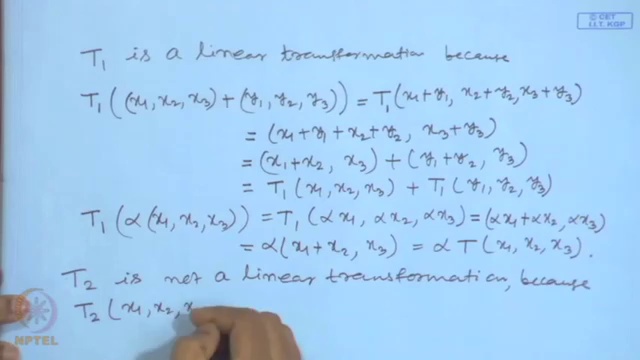 © CET
I.I.T. KGP
T₁ is a linear transformation because
T₁((x₁, x₂, x₃) + (y₁, y₂, y₃)) = T₁(x₁+y₁, x₂+y₂, x₃+y₃)
= (x₁+y₁+x₂+y₂, x₃+y₃)
= (x₁+x₂, x₃) + (y₁+y₂, y₃)
= T₁(x₁, x₂, x₃) + T₁(y₁, y₂, y₃)
T₁(α(x₁, x₂, x₃)) = T₁(αx₁, αx₂, αx₃) = (αx₁+αx₂, αx₃)
= α(x₁+x₂, x₃) = αT(x₁, x₂, x₃).
T₂ is not a linear transformation, because
T₂(x₁, x₂, x
NPTEL